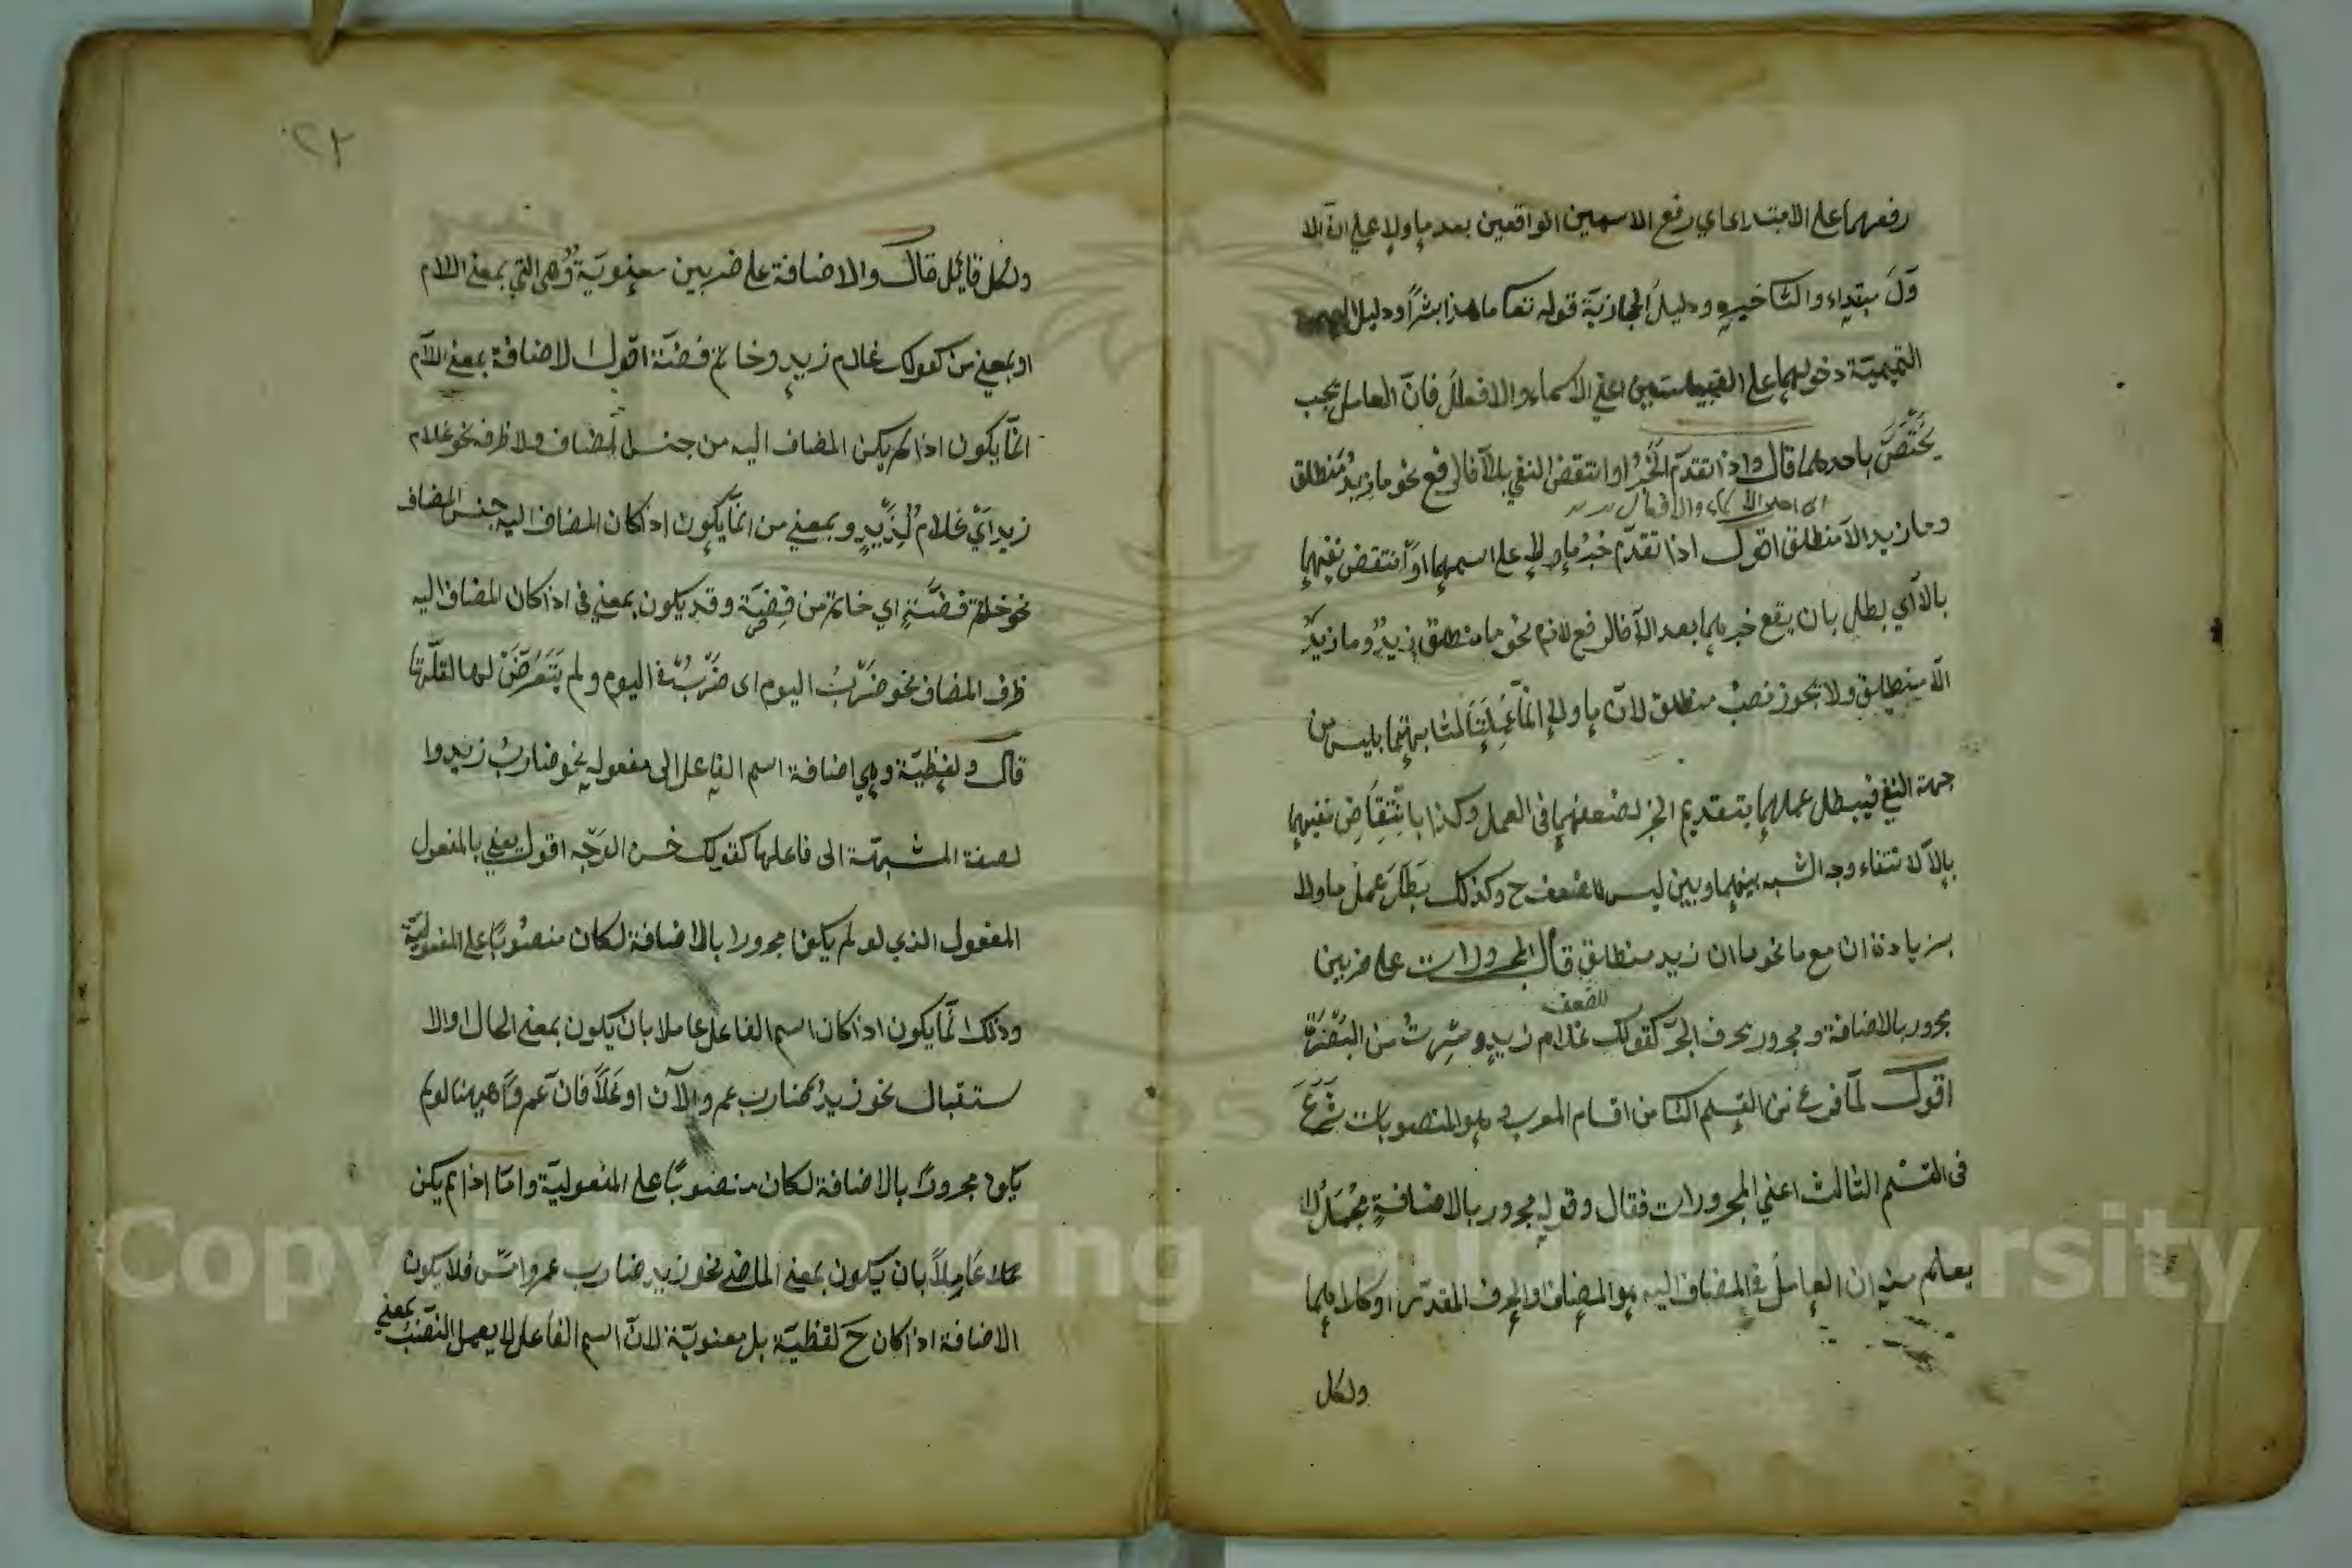 رفعهما على الابتداء اي رفع الاسمين الواقعين بعد ما ولا على ان الا
ول مبتداء والثا خبره ودليل الحجازية قوله تعا ما هذا بشرًا ودليل
التميمية دخولهما على القبيلتين اعني الاسماء والافعال فانّ العامل يجب
يختصّ باحدهما قال واذا تقدّم الخبرُ او انتقض النفي بالاّ فالرفع نحو ما زيدٌ منطلق
اي احد الاسماء والافعال
وما زيد الاّ منطلق اقول اذا تقدّم خبرُ ما ولا على اسمهما او انتقض نفيهما
بالاّ اي بطل بان يقع خبرهما بعد الاّ فالرفع لازم نحو ما منطلق زيدٌ وما زيدٌ
الاّ منطلق ولا يجوز نصبُ منطلق لانّ ما ولا انّما عملتا لمشابهتهما بليس من
جهة النفي فيبطل عملهما بتقديم الخبر لضعفهما في العمل وكذا بانتقاض نفيهما
بالاّ لانتفاء وجه الشبه بينهما وبين ليس للضعف ح وكذلك بطل عمل ما ولا
بزيادة ان مع ما نحو ما ان زيد منطلق قال المجرورات على ضربين
للضعف
مجرور بالاضافة ومجرور بحرف الجرّ كقولك غلام زيدٍ وسرت من البصرة
اقول لمّا فرغ من القسم الثا من اقسام المعرب وهو المنصوبات شرع
في القسم الثالث اعني المجرورات فقال وقوله مجرور بالاضافة مجمل
يعلم منه ان العامل في المضاف اليه هو المضاف او الحرف المقدّر او كلاهما
ولكل
٢٢
ولكل قائل قال والاضافة على ضربين معنويّة وهي التي بمعنى اللام
او بمعني من كقولك غلام زيدٍ وخاتم فضّة اقول الاضافة بمعنى اللام
انّما يكون اذا لم يكن المضاف اليه من جنس المضاف ولا ظرفه نحو غلام
زيد ايْ غلامٌ لزيدٍ وبمعني من انّما يكون اذا كان المضاف اليه جنس المضاف
نحو خاتم فضّةٍ اي خاتم من فضّة وقد يكون بمعني في اذا كان المضاف اليه
ظرف المضاف نحو ضربُ اليوم اى ضربٌ في اليوم ولم يتعرّض لها لقلّتها
قال ولفظيّة وهي اضافة اسم الفاعل الى مفعوله نحو ضاربُ زيد وا
لصفة المشبهة الى فاعلها كقولك حسن الوجه اقول يعني بالمفعول
المفعول الذي لو لم يكن مجرورا بالاضافة لكان منصوبًا على المفعوليّة
وذلك انّما يكون اذا كان اسم الفاعل عاملا بان يكون بمعنى الحال او الا
ستقبال نحو زيدٌ ضارب عمرو الآن او غدًا فانّ عمروًا ههنا لو لم
يكن مجرورًا بالاضافة لكان منصوبًا على المفعوليّة وامّا اذا لم يكن
عاملاً بان يكون بمعنى الماضي نحو زيد ضارب عمرو امس فلا يكون
الاضافة اذا كان ح لفظيّة بل معنويّة لانّ اسم الفاعل لا يعمل النصب بمعني
Copyright © King Saud University
195